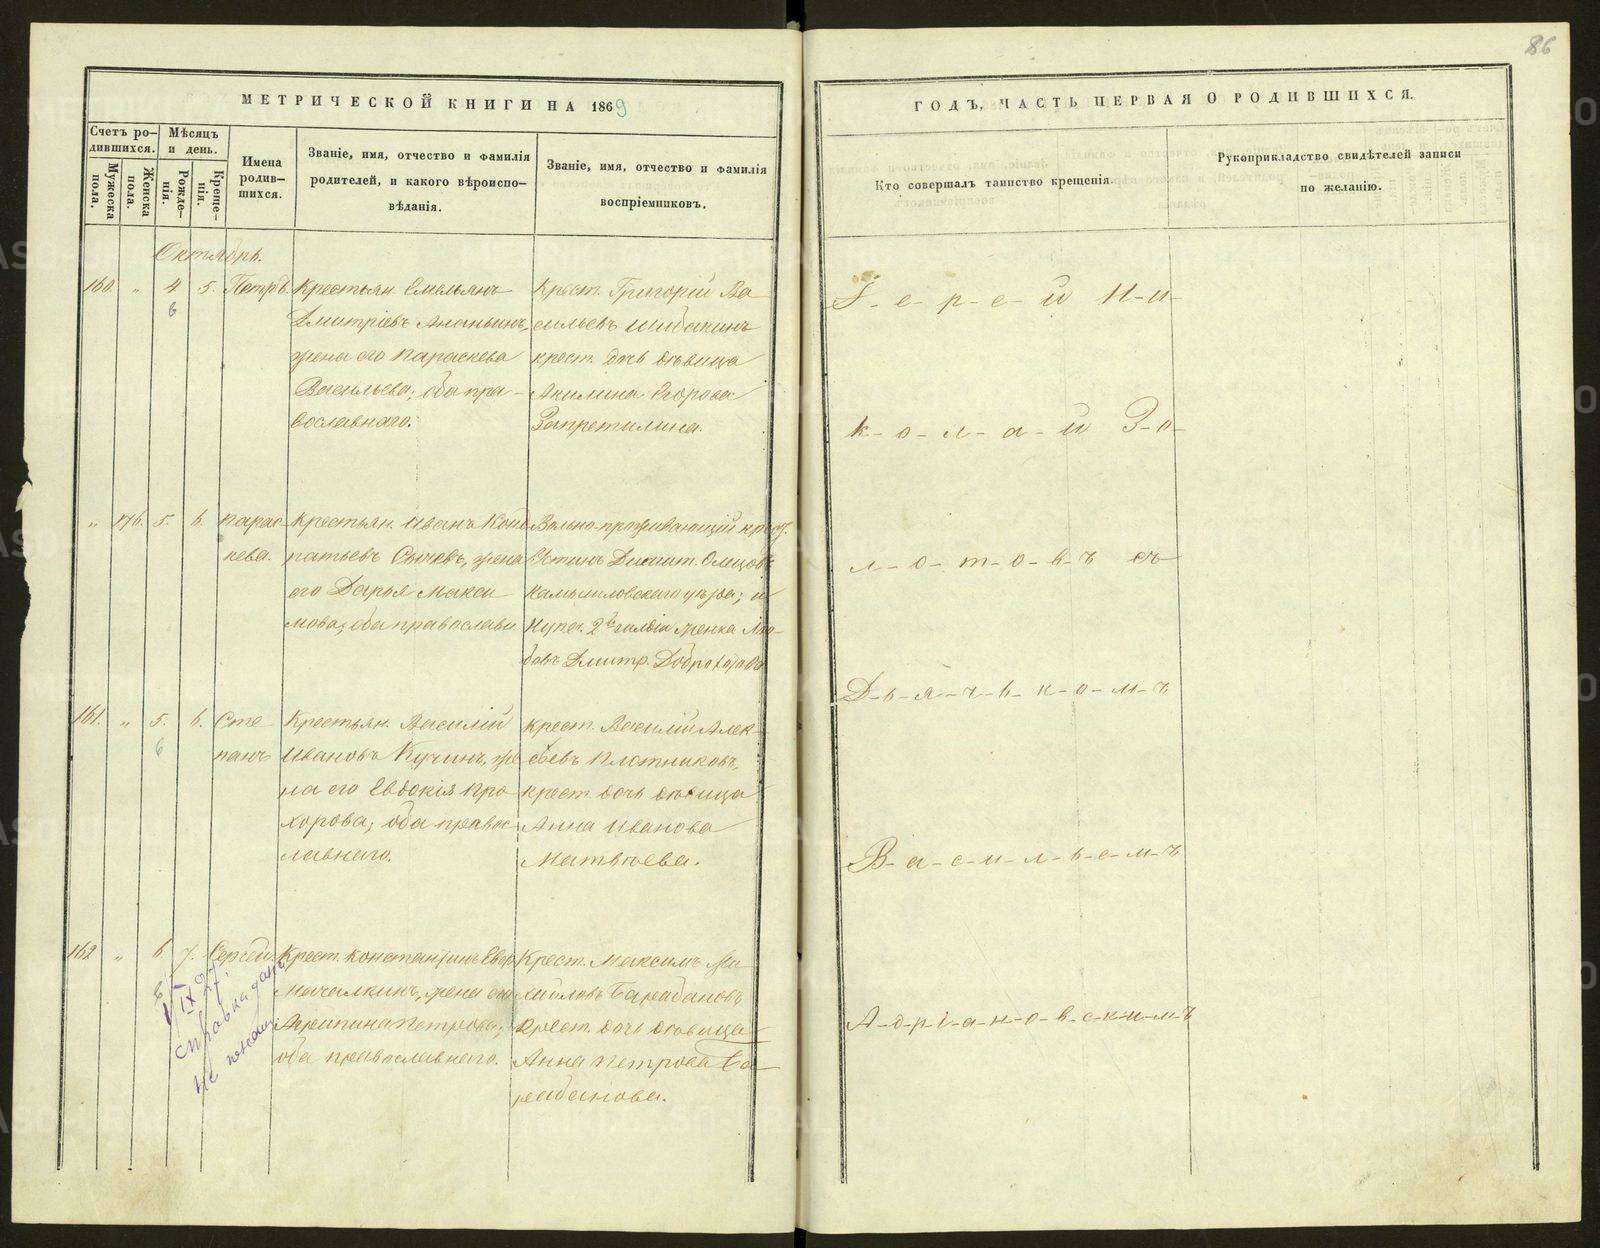 86
МЕТРИЧЕСКОЙ КНИГИ НА 1869
ГОДЪ, ЧАСТЬ ПЕРВАЯ О РОДИВШИХСЯ.
Счетъ ро-
дившихся.
Мужеска пола.
Женска пола.
Мѣсяцъ
и день.
Рожде-
нія.
Креще-
нія.
Имена
родив-
шихся.
Званіе, имя, отчество и фамилія
родителей, и какого вѣроиспо-
вѣданія.
Званіе, имя, отчество и фамилія
воспріемниковъ.
Кто совершалъ таинство крещенія.
Рукоприкладство свидѣтелей записи
по желанію.
Октябрь.
160. " 4 5. Петръ.
6
Крестьян. Емельянъ
Дмитріевъ Ананьинъ,
жена его Параскева
Васильева; оба пра-
вославнаго.
Крест. Григорій Ва
сильевъ Шибакинъ
крест. дочь дѣвица
Акилина Егорова
Запретилина.
" 176. 5. 6. Парас
кева.
Крестьян. Иванъ Конд
ратьевъ Сычевъ, жена
его Дарья Макси
мова; оба православн.
Вольно-проживающій
Устинъ Димит.
Камышловскаго уѣзда; и
Купец. 2й гильдіи женка Лю-
бовь Дмитр.
161. " 5. 6. Сте
6
панъ
Крестьян. Василій
Ивановъ Кучинъ, же
на его Евдокія Про
хорова; оба правос
лавнаго.
крест. Василій Алек
сѣевъ Плотниковъ,
крест. дочь дѣвица
Анна Иванова
Матвѣева.
162 " 6 7. Сергѣй.
8
Крест. Константинъ Егор
Мочалкинъ, жена его
Агрипина Петрова;
оба православнаго.
Крест. Максимъ Ми
хайловъ Барабановъ
Крест. дочь дѣвица
Анна Петрова Ба
рабанова.
справка дана
І-е-р-е-й Н-и-
к-о-л-а-й З-о-
л-о-т-о-в-ъ съ
Д-ь-я-ч-ь-к-о-м-ъ
В-а-с-и-л-ь-е-м-ъ
А-д-р-і-а-н-о-в-с-к-и-м-ъ
METRIKI.GASO-URAL.RU